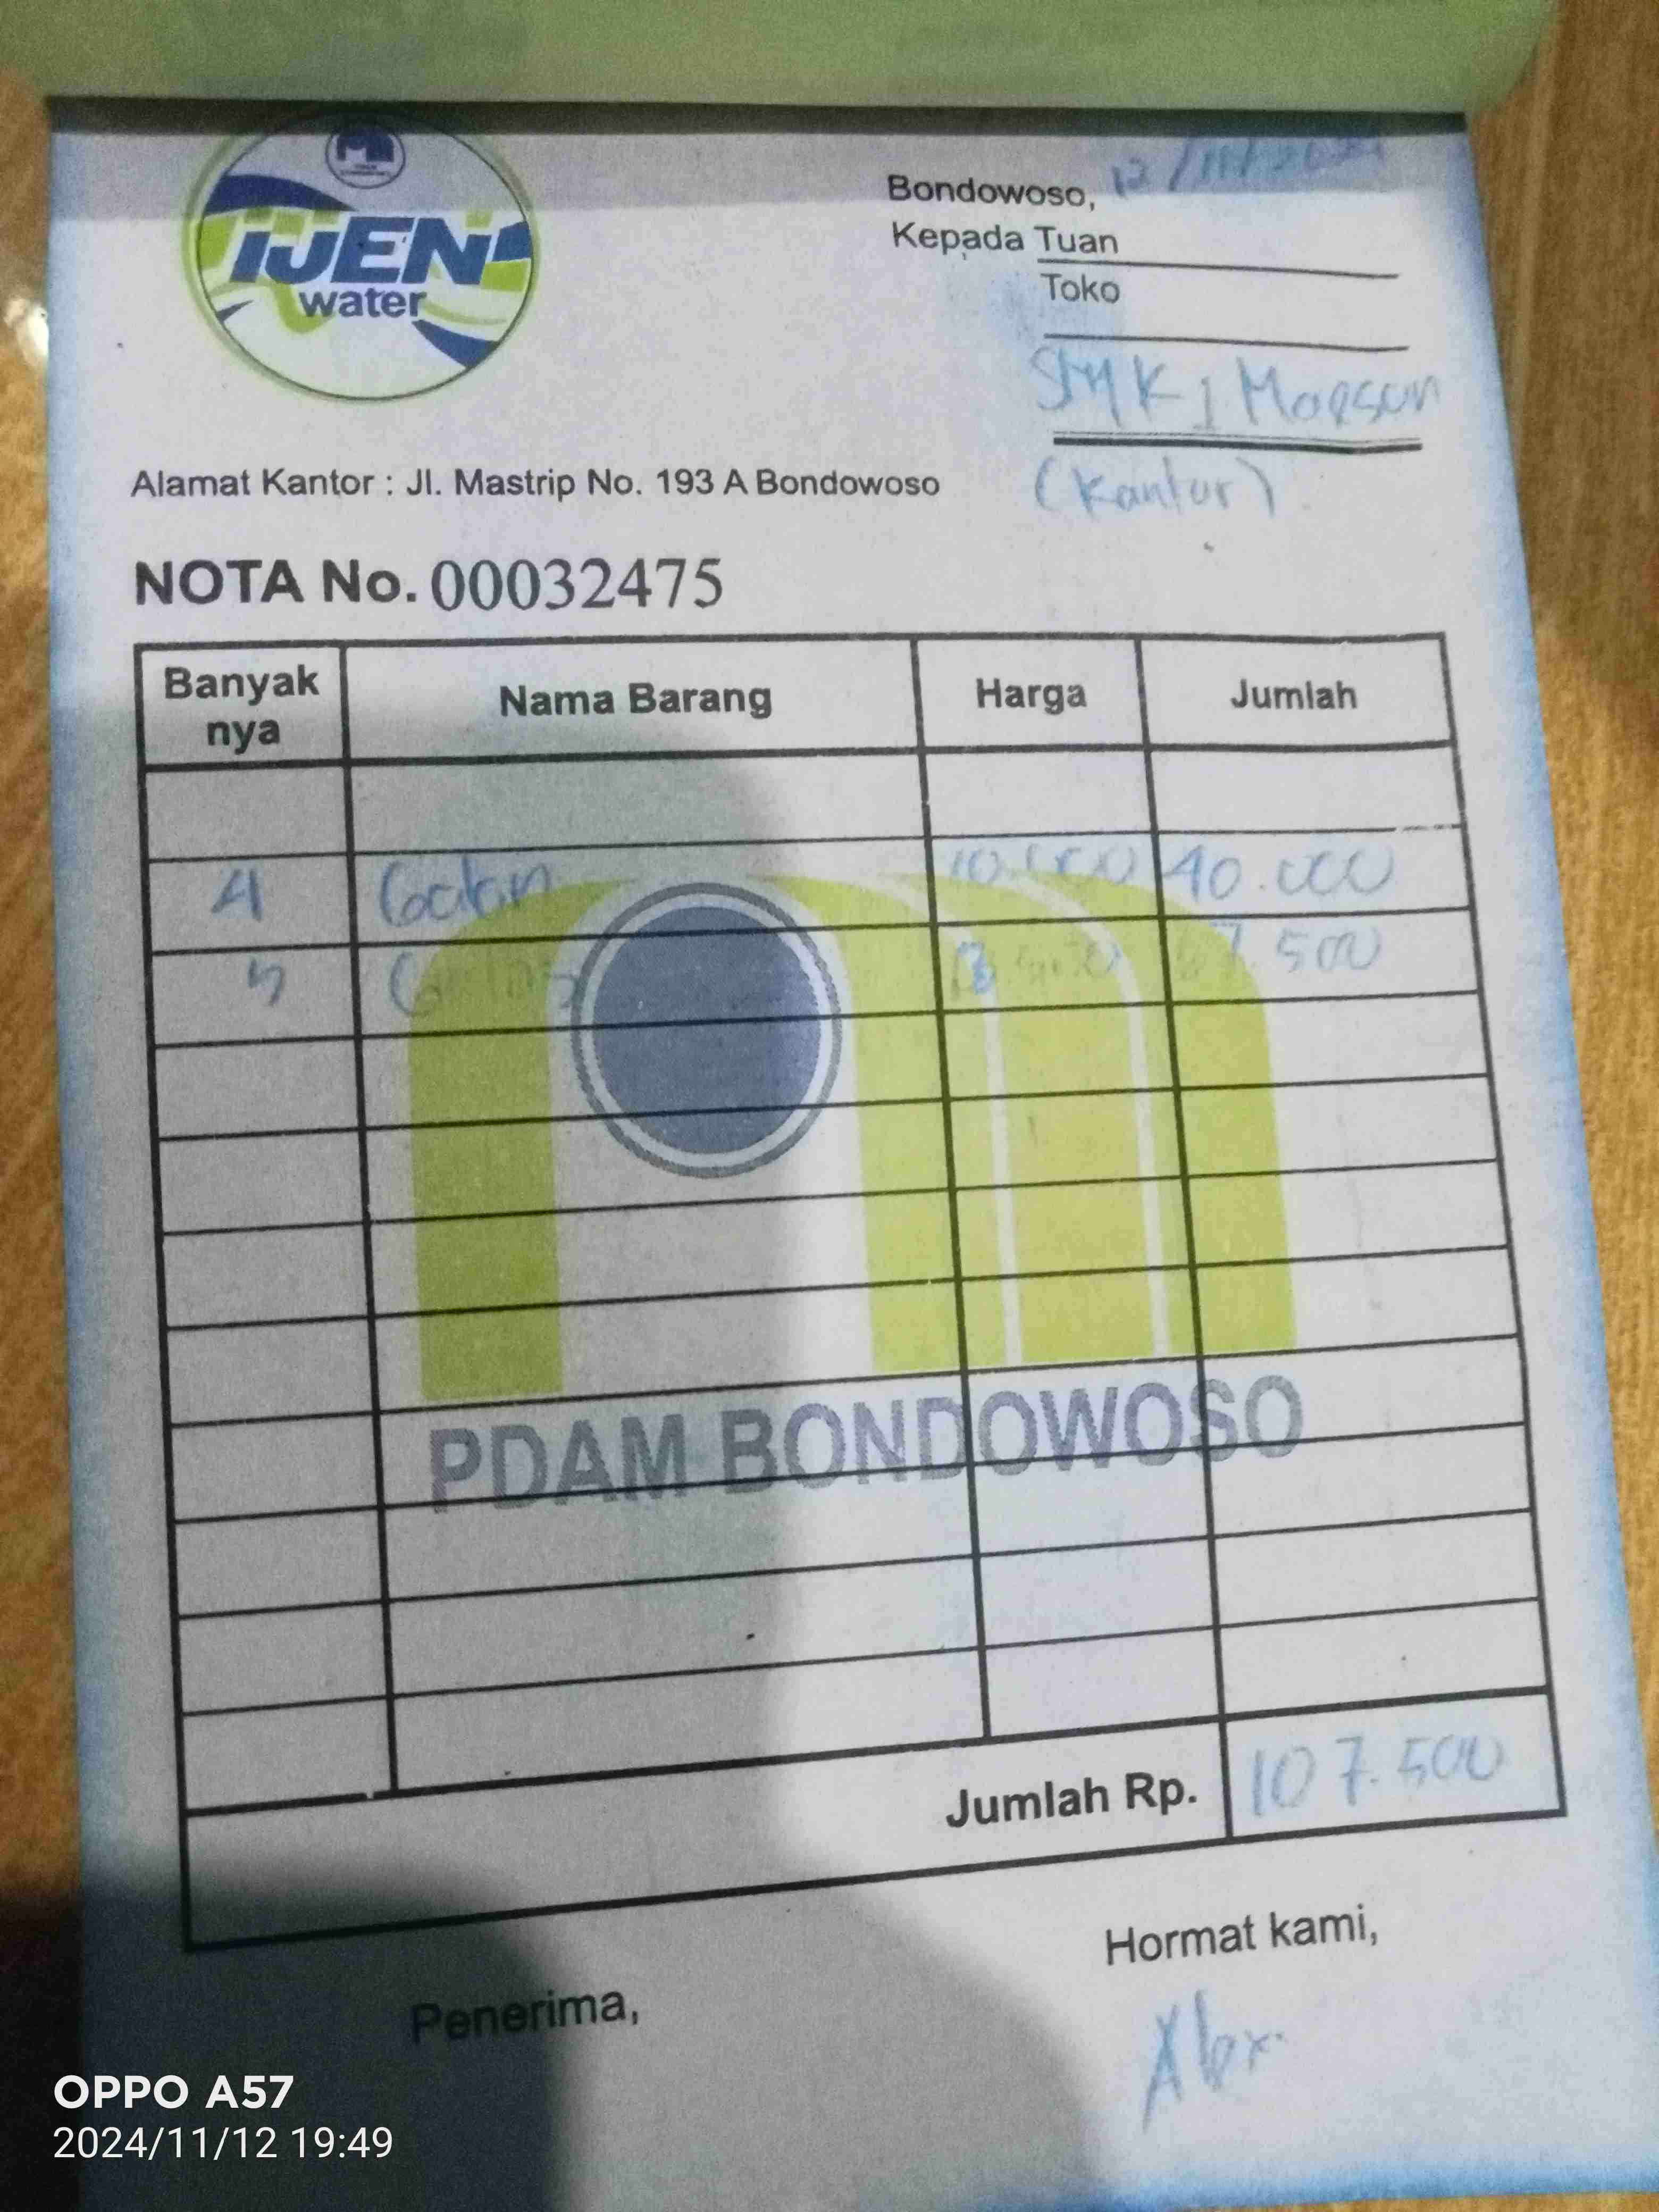 IJEN
water
Bondowoso, 12/11/2024
Kepada Tuan
Toko
SMK 1 Maesan
(Kantor)
Alamat Kantor : Jl. Mastrip No. 193 A Bondowoso
NOTA No. 00032475
Banyak nya Nama Barang Harga Jumlah
4 Galon 10.000 40.000
5 67.500
PDAM BONDOWOSO
Jumlah Rp. 107.500
Hormat kami,
Penerima,
OPPO A57
2024/11/12 19:49